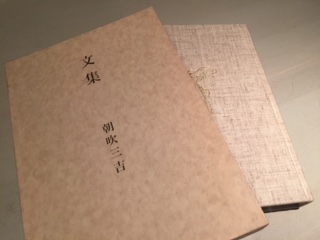 文集
朝吹三吉